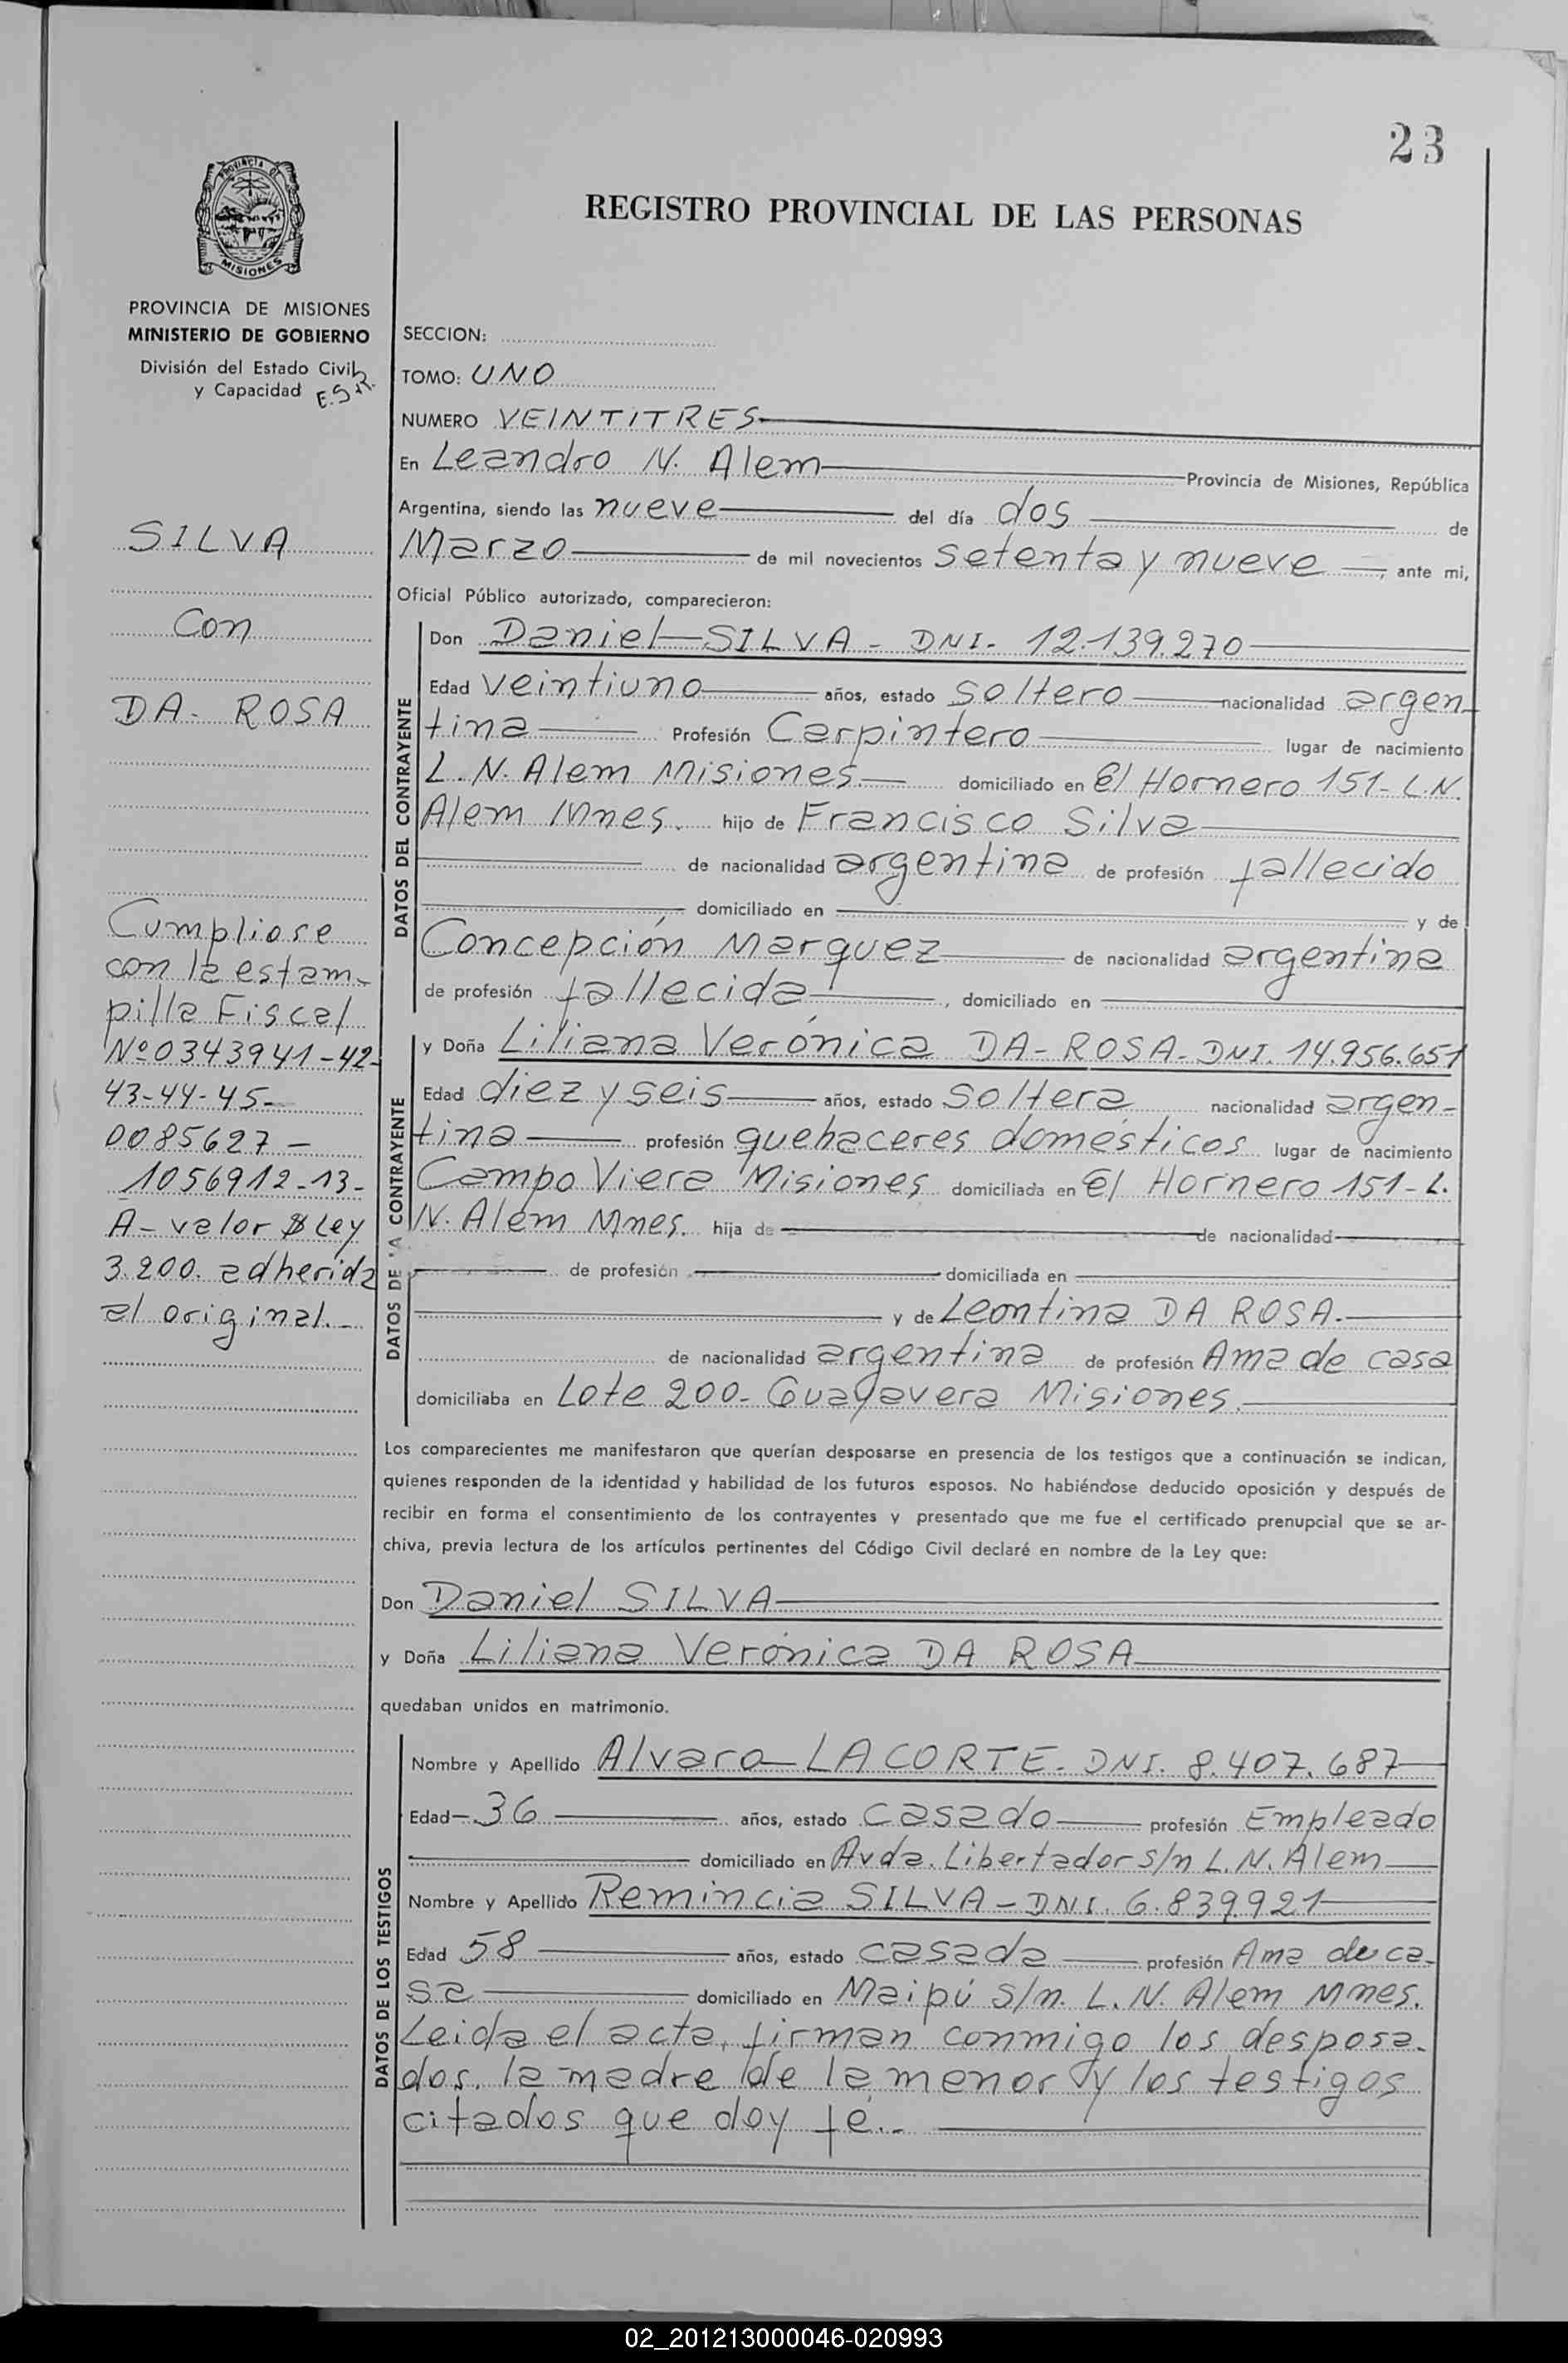 23
PROVINCIA DE
MISIONES
REGISTRO PROVINCIAL DE LAS PERSONAS
PROVINCIA DE MISIONES
MINISTERIO DE GOBIERNO
División del Estado Civil
y Capacidad
SILVA
Con
DA- ROSA
Cumpliose
con la estam-
pilla Fiscal
Nº 0343941-42-
43-44-45-
0085627-
1056912-13-
A- valor $ Ley
3.200. adherida
al original.-
SECCION:
TOMO: UNO
NUMERO VEINTITRES
En Leandro N. Alem Provincia de Misiones, República
Argentina, siendo las nueve del día dos de
Marzo de mil novecientos setenta y nueve, ante mi,
Oficial Público autorizado, comparecieron:
DATOS DEL CONTRAYENTE
Don Daniel SILVA - DNI- 12.139.270
Edad veintiuno años, estado soltero nacionalidad argen-
tina Profesión Carpintero lugar de nacimiento
L.N. Alem Misiones. domiciliado en El Hornero 151- L.N.
Alem Mnes. hijo de Francisco Silva
de nacionalidad argentina de profesión fallecido
domiciliado en y de
Concepción Marquez de nacionalidad argentina
de profesión fallecida, domiciliado en
DATOS DE LA CONTRAYENTE
y Doña Liliana Verónica DA- ROSA- DNI. 14.956.651
Edad diez y seis años, estado soltera nacionalidad argen-
tina profesión quehaceres domésticos lugar de nacimiento
Campo Viera Misiones domiciliada en El Hornero 151- L.
N. Alem Mnes. hija de de nacionalidad
de profesión domiciliada en
y de Leontina DA ROSA.
de nacionalidad argentina de profesión Ama de casa
domiciliaba en Lote 200- Guayavera Misiones.
Los comparecientes me manifestaron que querían desposarse en presencia de los testigos que a continuación se indican,
quienes responden de la identidad y habilidad de los futuros esposos. No habiéndose deducido oposición y después de
recibir en forma el consentimiento de los contrayentes y presentado que me fue el certificado prenupcial que se ar-
chiva, previa lectura de los artículos pertinentes del Código Civil declaré en nombre de la Ley que:
Don Daniel SILVA
y Doña Liliana Verónica DA ROSA
quedaban unidos en matrimonio.
DATOS DE LOS TESTIGOS
Nombre y Apellido Alvaro LACORTE- DNI. 8.407.687
Edad 36 años, estado casado profesión Empleado
domiciliado en Avda. Libertador s/n L.N. Alem
Nombre y Apellido Remincia SILVA - DNI. 6.839.921
Edad 58 años, estado casada profesión Ama de ca-
sa domiciliado en Maipú s/n. L.N. Alem Mnes.
Leida el acta, firman conmigo los desposa-
dos, la madre de la menor y los testigos
citados que doy fé.-
02_201213000046-020993